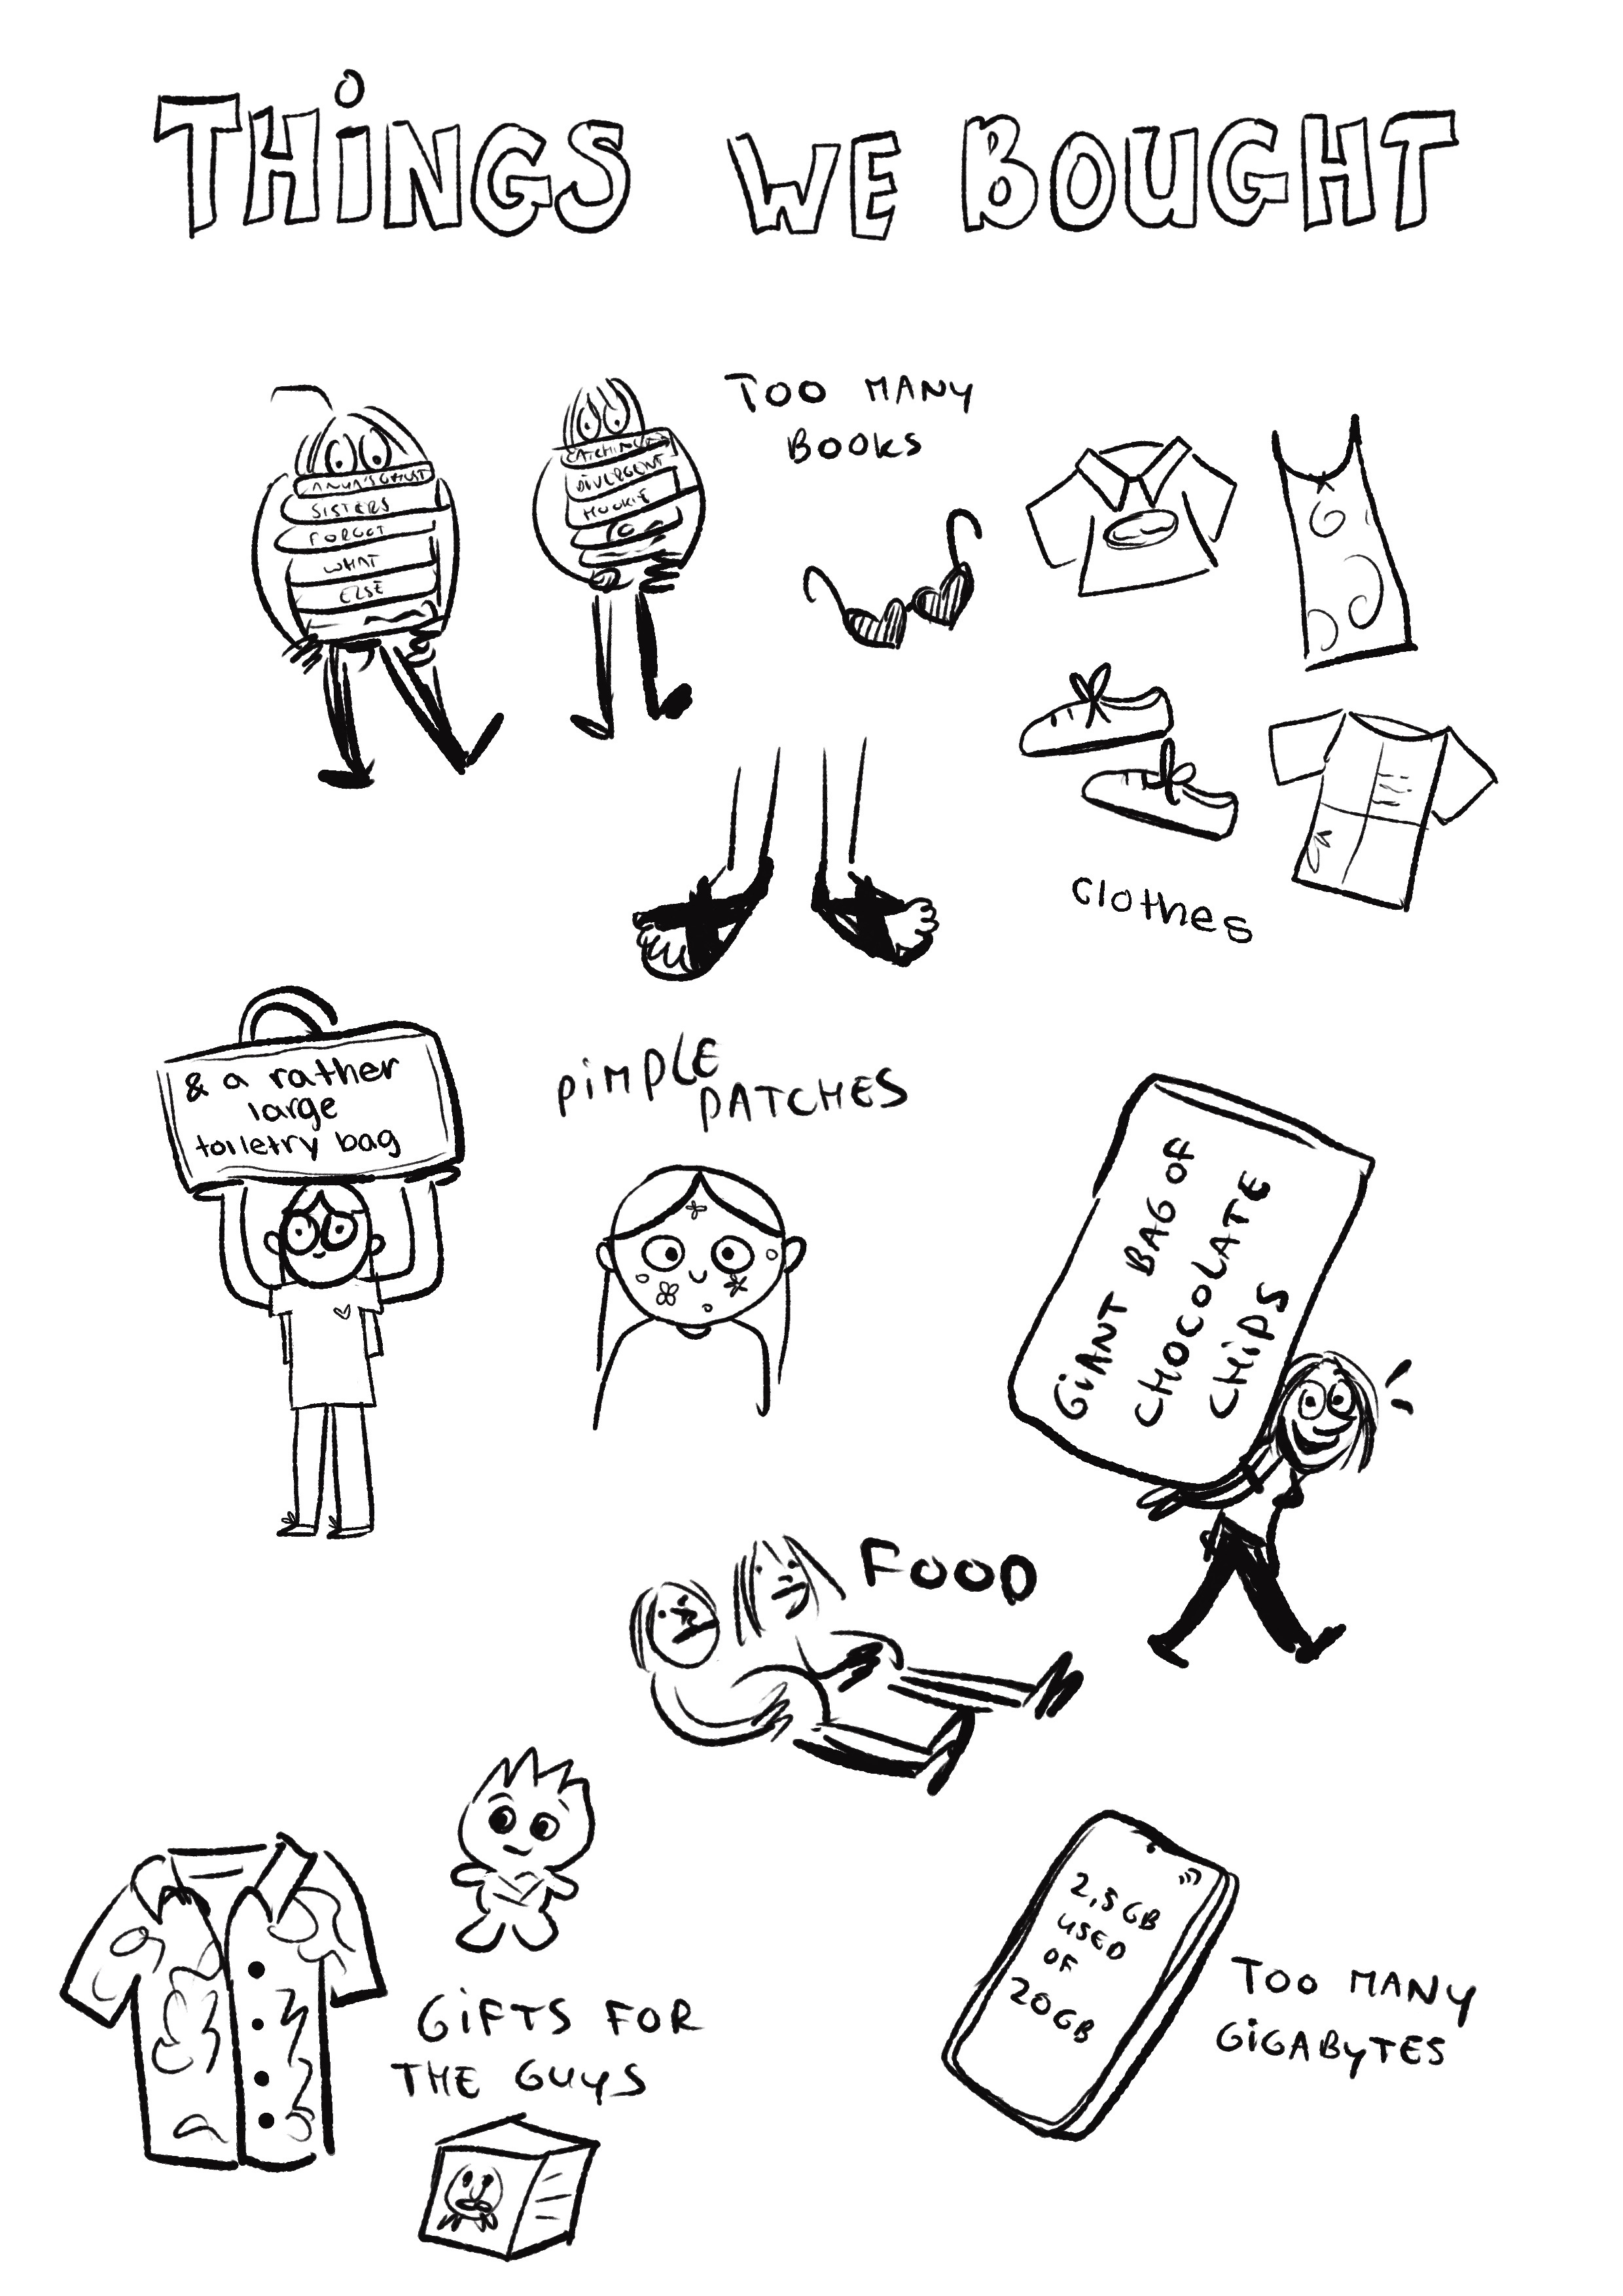 THiNGS WE BOUGHT
TOO MANY
BOOKS
ANYA'S GHOST
SISTERS
FORGOT
WHAT
ELSE
CATCHING
DIVERGENT
clothes
& a rather
large
toiletry bag
PiMPLE
PATCHES
GiANT BAG OF
CHOCOLATE
CHiPS
FOOD
GiFTS FOR
THE GUYS
2,5 GB
USED
OF
20GB
TOO MANY
GiGABYTES